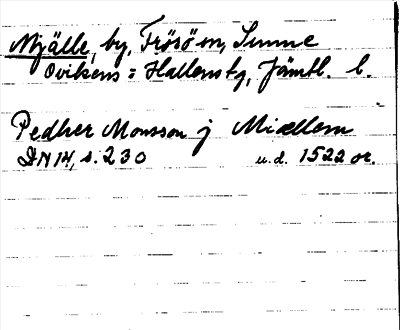 Mjälle, by, Frösö sn, Sunne
Ovikens o Hallens tg, Jämtl. l.
Pedher Monsson j Miællem
DN 14, s. 230 u.d. 1522 or.